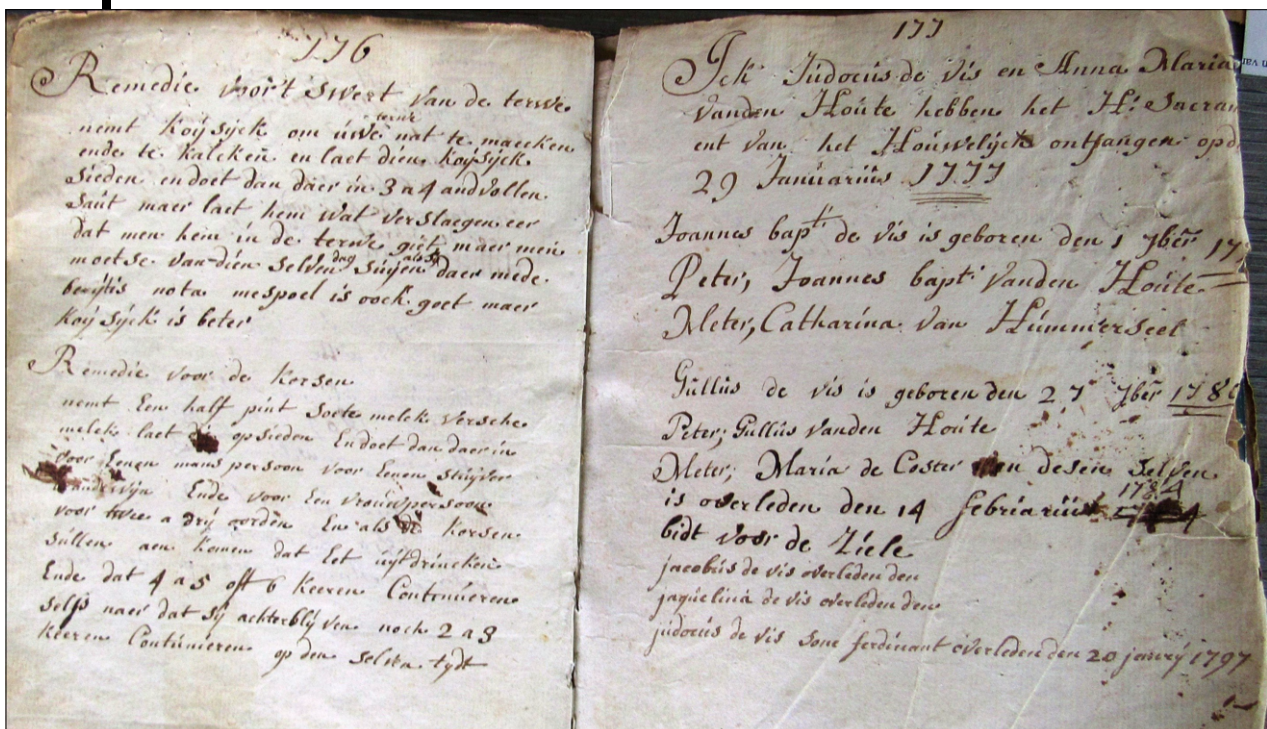 176
Remedie voor't Swert van de terwe
nemt Koÿsijck om úwe terwe nat te maecken
ende te Kalcken en laet dien Koÿsijck
Sieden en doet dan daer in 3 a 4 andvollen
Saút maer laet hem wat verslaegen eer
dat men hem in de terwe giet maer men
moetse van dien selven dag saijen als sij daer mede
nota mespoel is oock goet maer
Koÿsijck is beter
Remedie voor de Korsen
nemt Een half pint Soete melck versche
melck laet die opsieden En doet dan daer in
voor Eenen mans persoon voor Eenen stuÿver
brandewijn Ende voor Een vrouwpersoon
voor twee a drÿ oorden En als de Korsen
súllen aen Komen dat Eet uÿtdrincken
Ende dat 4 a 5 off 6 Keeren Continúeren
selfs naer dat sÿ achterblÿven noch 2 a 3
Keeren Continúeren op den selven tÿdt
177
Ick Júdocús de vis en Anna Maria
vanden Hoúte hebben het H: Sacram
ent van het Hoúwelijck ontfangen op d
29 Janúariús 1777
Joannes bapt de vis is geboren den 1 7ber 17
Peter, Joannes bapt vanden Hoúte
Meter, Catharina van Húmmerseel
Gúllús de vis is geboren den 27 7ber 178
Peter; Gúllús vanden Hoúte
Meter; Maria de Coster den desen selven
is overleden den 14 febriariús 1784
bidt voor de Ziele
jacobús de vis overleden den
jaquelina de vis overleden den
júdocús de vis sone ferdinant overleden den 20 janrÿ 1797